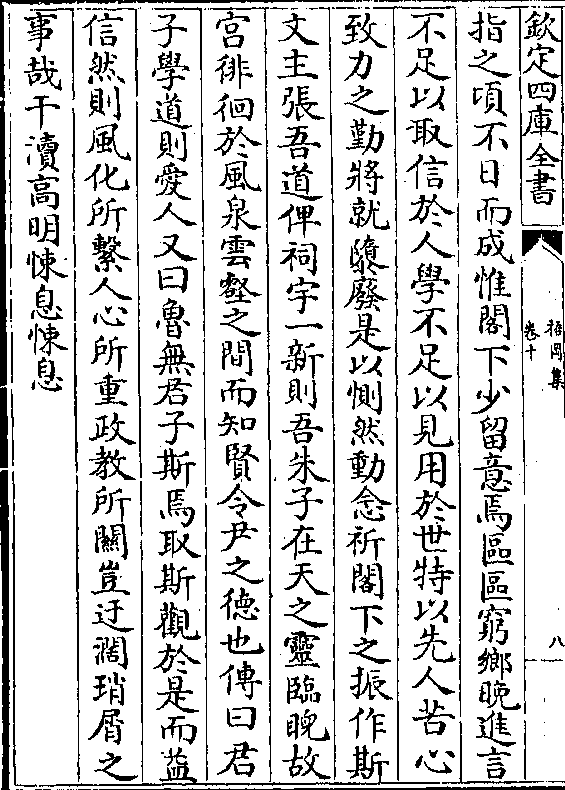 欽定四庫全書
梧岡集
卷十
八
指之頃不日而成惟閣下少留意焉區區窮鄉晚進言
不足以取信於人學不足以見用於世特以先人苦心
致力之勤將就隳廢是以惻然動念祈閣下之振作斯
文主張吾道俾祠宇一新則吾朱子在天之靈臨睨故
宫徘徊於風泉雲壑之間而知賢令尹之徳也傳曰君
子學道則愛人又曰魯無君子斯焉取斯觀於是而益
信然則風化所繫人心所重政教所關豈迂濶瑣屑之
事哉干瀆高明悚息悚息